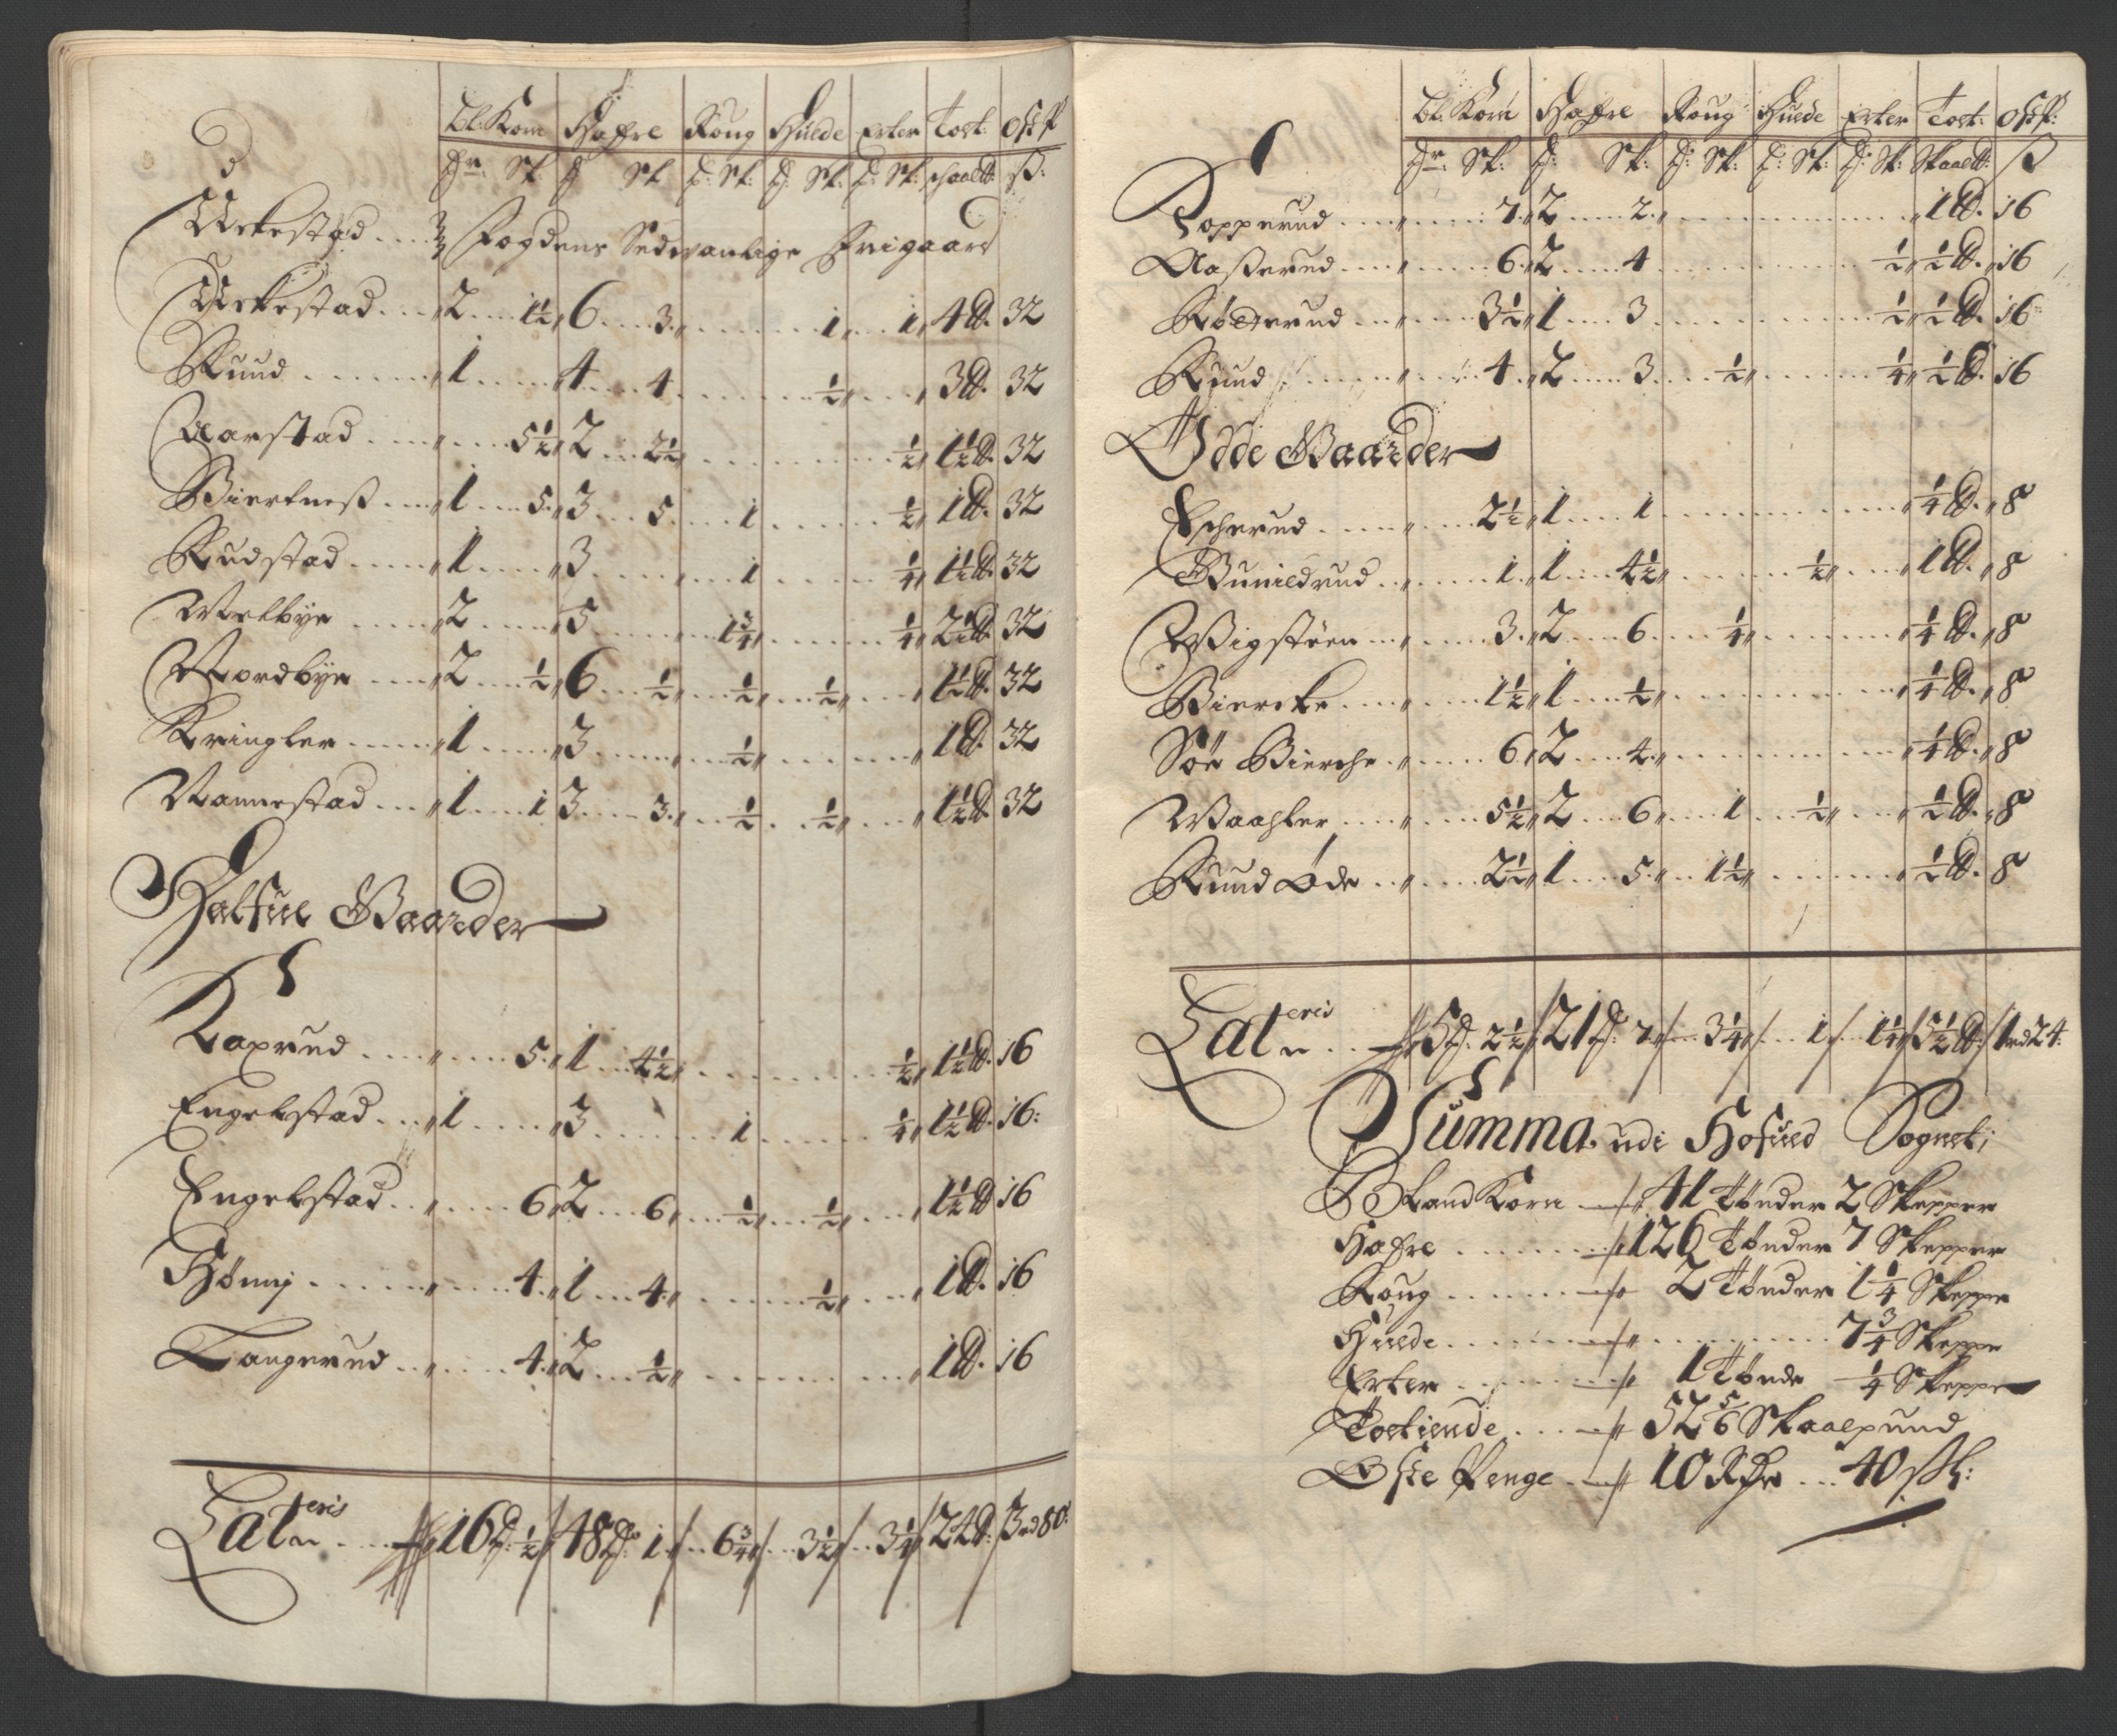 Bl: Korn Hafre Roug Huede Erter Tost: Ost
Tr: Sk T Sk T: Sk: T: Sk: T: Sk: schaalt: ß:
Uerkestad .... Fogdens Sedvanlige Frigaard
Uerkestad ... 2 ... 1½ 6 ... 3 ... 1 ... 1 4 ℔. 32
Ruud ...... 1 .... 4 ... 4 ....... ½ .... 3 ℔. 32
Aarstad ....... 5½ 2 ... 2½ ........ ½ 1½ ℔. 32
Biertness ... 1 ... 5. 3 ... 5 ... 1 ...... ½ 1 ℔. 32
Rudstad .... 1 .... 3 ....... 1 ..... ¼ 1½ ℔. 32
Melbye ..... 2 .... 5 ...... 1¾ ...... ¼ 2½ ℔. 32
Nordbye .... 2 ... ½ 6 ... ½ ... ½ ... ½ ... 1½ ℔. 32
Kringler .... 1 .... 3 ...... ½ ....... 1 ℔. 32
Nannestad ... 1 ... 1 3 .... 3 ... ½ ... ½ .... 1½ ℔. 32
Halfue Gaarder
Kaxrud ...... 5. 1 ... 4½ ........ ½ 1½ ℔. 16
Engelstad ... 1 .... 3 ....... 1 ...... ¼ 1½ ℔. 16:
Engelstad ...... 6 2 ... 6 ... ½ ... ½ .... 1½ ℔ 16
Hønnj ........ 4. 1 ... 4 ...... ½ .... 1 ℔. 16
Tangerud ...... 4. 2 ... ½ ........ 1 ℔. 16
Lateris .... 16 T: ½ 48 T: 1 ... 6¾ ... 3½ ... 3¼ 24 ℔: 3 rd 80:
Bl: Korn Hafre Roug Huede Erter Tost: Ost:
Tr: Sk: T: Sk: T: Sk: T: Sk: T: Sk: Skaalt: ß
Kopperud ........ 7. 2 ... 2 ........... 1 ℔. 16
Aasserud ........ 6. 2 ... 4 ......... ½ ½ ℔. 16
Rødterud ....... 3½ 1 ... 3 ......... ½ ½ ℔. 16
Ruud ......... 4. 2 ... 3 ... ½ ...... ¼ ½ ℔. 16
Ødde Gaarder
Escherud ...... 2½ 1 ... 1 ........... ¼ ℔. 8
Gunildrud ...... 1. 1 ... 4½ ....... ½ ... 1 ℔. 8
Wigsteen ...... 3. 2 ... 6 ... ¼ ........ ¼ ℔. 8
Biercke ...... 1½ 1 ... ½ .......... ¼ ℔. 8
Søe Bierche ..... 6 2 ... 4 .......... ¼ ℔. 8
Waahler ...... 5½ 2 ... 6 ... 1 ... ½ .... ½ ℔. 8
Ruud Øde ..... 2½ 1 ... 5 ... 1½ ....... ½ ℔. 8
Lateris ... 5 T. 2½ 21 T: 7 ... 3¼ ... 1 ... 1¼ 5½ ℔. 1 rd 24:
Summa udi Hofued Sognet;
Bland Korn 41 Tønder 2 Skepper
Hafre ....... 126 Tønder 7 Skepper
Roug ....... 2 Tønder 1¼ Skeppe
Huede ............... 7¾ Skeppe
Erter ....... 1 Tønde ¼ Skeppe
Tostiende .... 52 5/6 Skaalpund
Oste Penge 10 Rdr ... 40 sk: